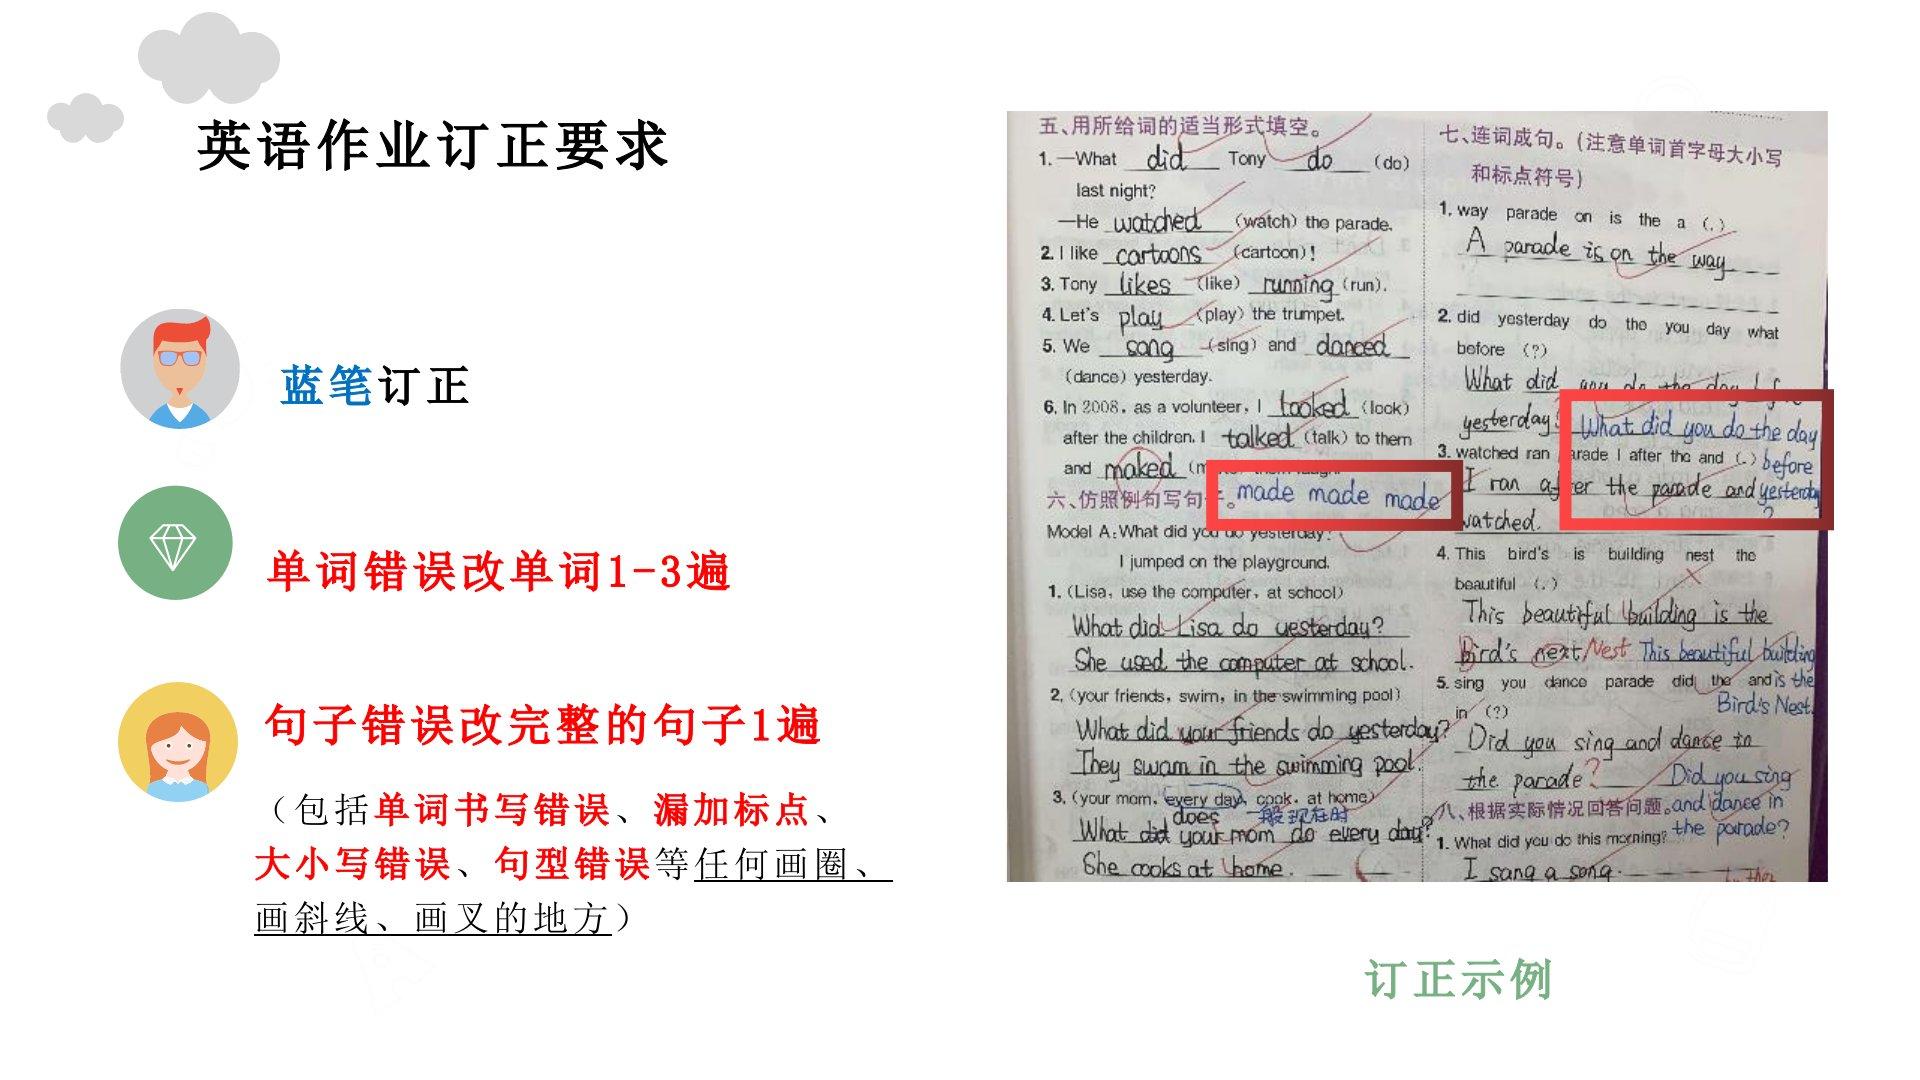 英语作业订正要求
蓝笔订正
单词错误改单词1-3遍
句子错误改完整的句子1遍
（包括单词书写错误、漏加标点、
大小写错误、句型错误等任何画圈、
画斜线、画叉的地方）
五、用所给词的适当形式填空。
1. —What did Tony do (do)
last night?
—He watched (watch) the parade.
2. I like cartoons (cartoon)!
3. Tony likes (like) running (run).
4. Let's play (play) the trumpet.
5. We sang (sing) and danced
(dance) yesterday.
6. In 2008, as a volunteer, I looked (look)
after the children. I talked (talk) to them
and maked
六、仿照例句写句
made made made
Model A: What did you do yesterday?
I jumped on the playground.
1. (Lisa, use the computer, at school)
What did Lisa do yesterday?
She used the computer at school.
2. (your friends, swim, in the swimming pool)
What did your friends do yesterday?
They swam in the swimming pool.
3. (your mom, every day, cook, at home)
does 一般现在时
What did your mom do every day?
She cooks at home.
七、连词成句。(注意单词首字母大小写
和标点符号)
1. way parade on is the a (.)
A parade is on the way
2. did yesterday do the you day what
before (?)
What did you do the day
yesterday?
What did you do the day
before
yesterday
?
3. watched ran parade I after the and (.)
I ran after the parade and
watched.
4. This bird's is building nest the
beautiful (.)
This beautiful building is the
Bird's next Nest This beautiful building
is the
Bird's Nest.
5. sing you dance parade did the and
in (?)
Did you sing and dance in
the parade? Did you sing
and dance in
the parade?
八、根据实际情况回答问题。
1. What did you do this morning?
I sang a song.
订正示例